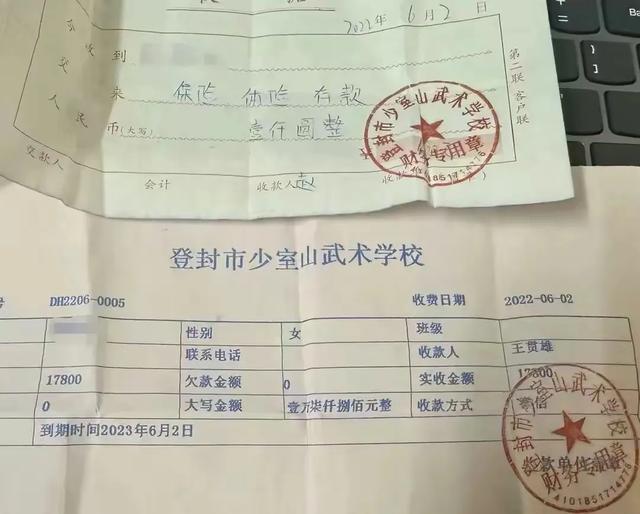 2022年6月2日
今收到
交来 保险 体险 存款
人民币(大写) 壹仟圆整
交款人 会计 收款人 赵 收款单位
第二联 客户联
登封市少室山武术学校
财务专用章
登封市少室山武术学校
号 DH2206-0005 收费日期 2022-06-02
性别 女 班级
联系电话 收款人 王贯雄
17800 欠款金额 0 实收金额 17800
0 大写金额 壹万柒仟捌佰元整 收款方式 微信
到期时间2023年6月2日
登封市少室山武术学校
财务专用章
4101851714778